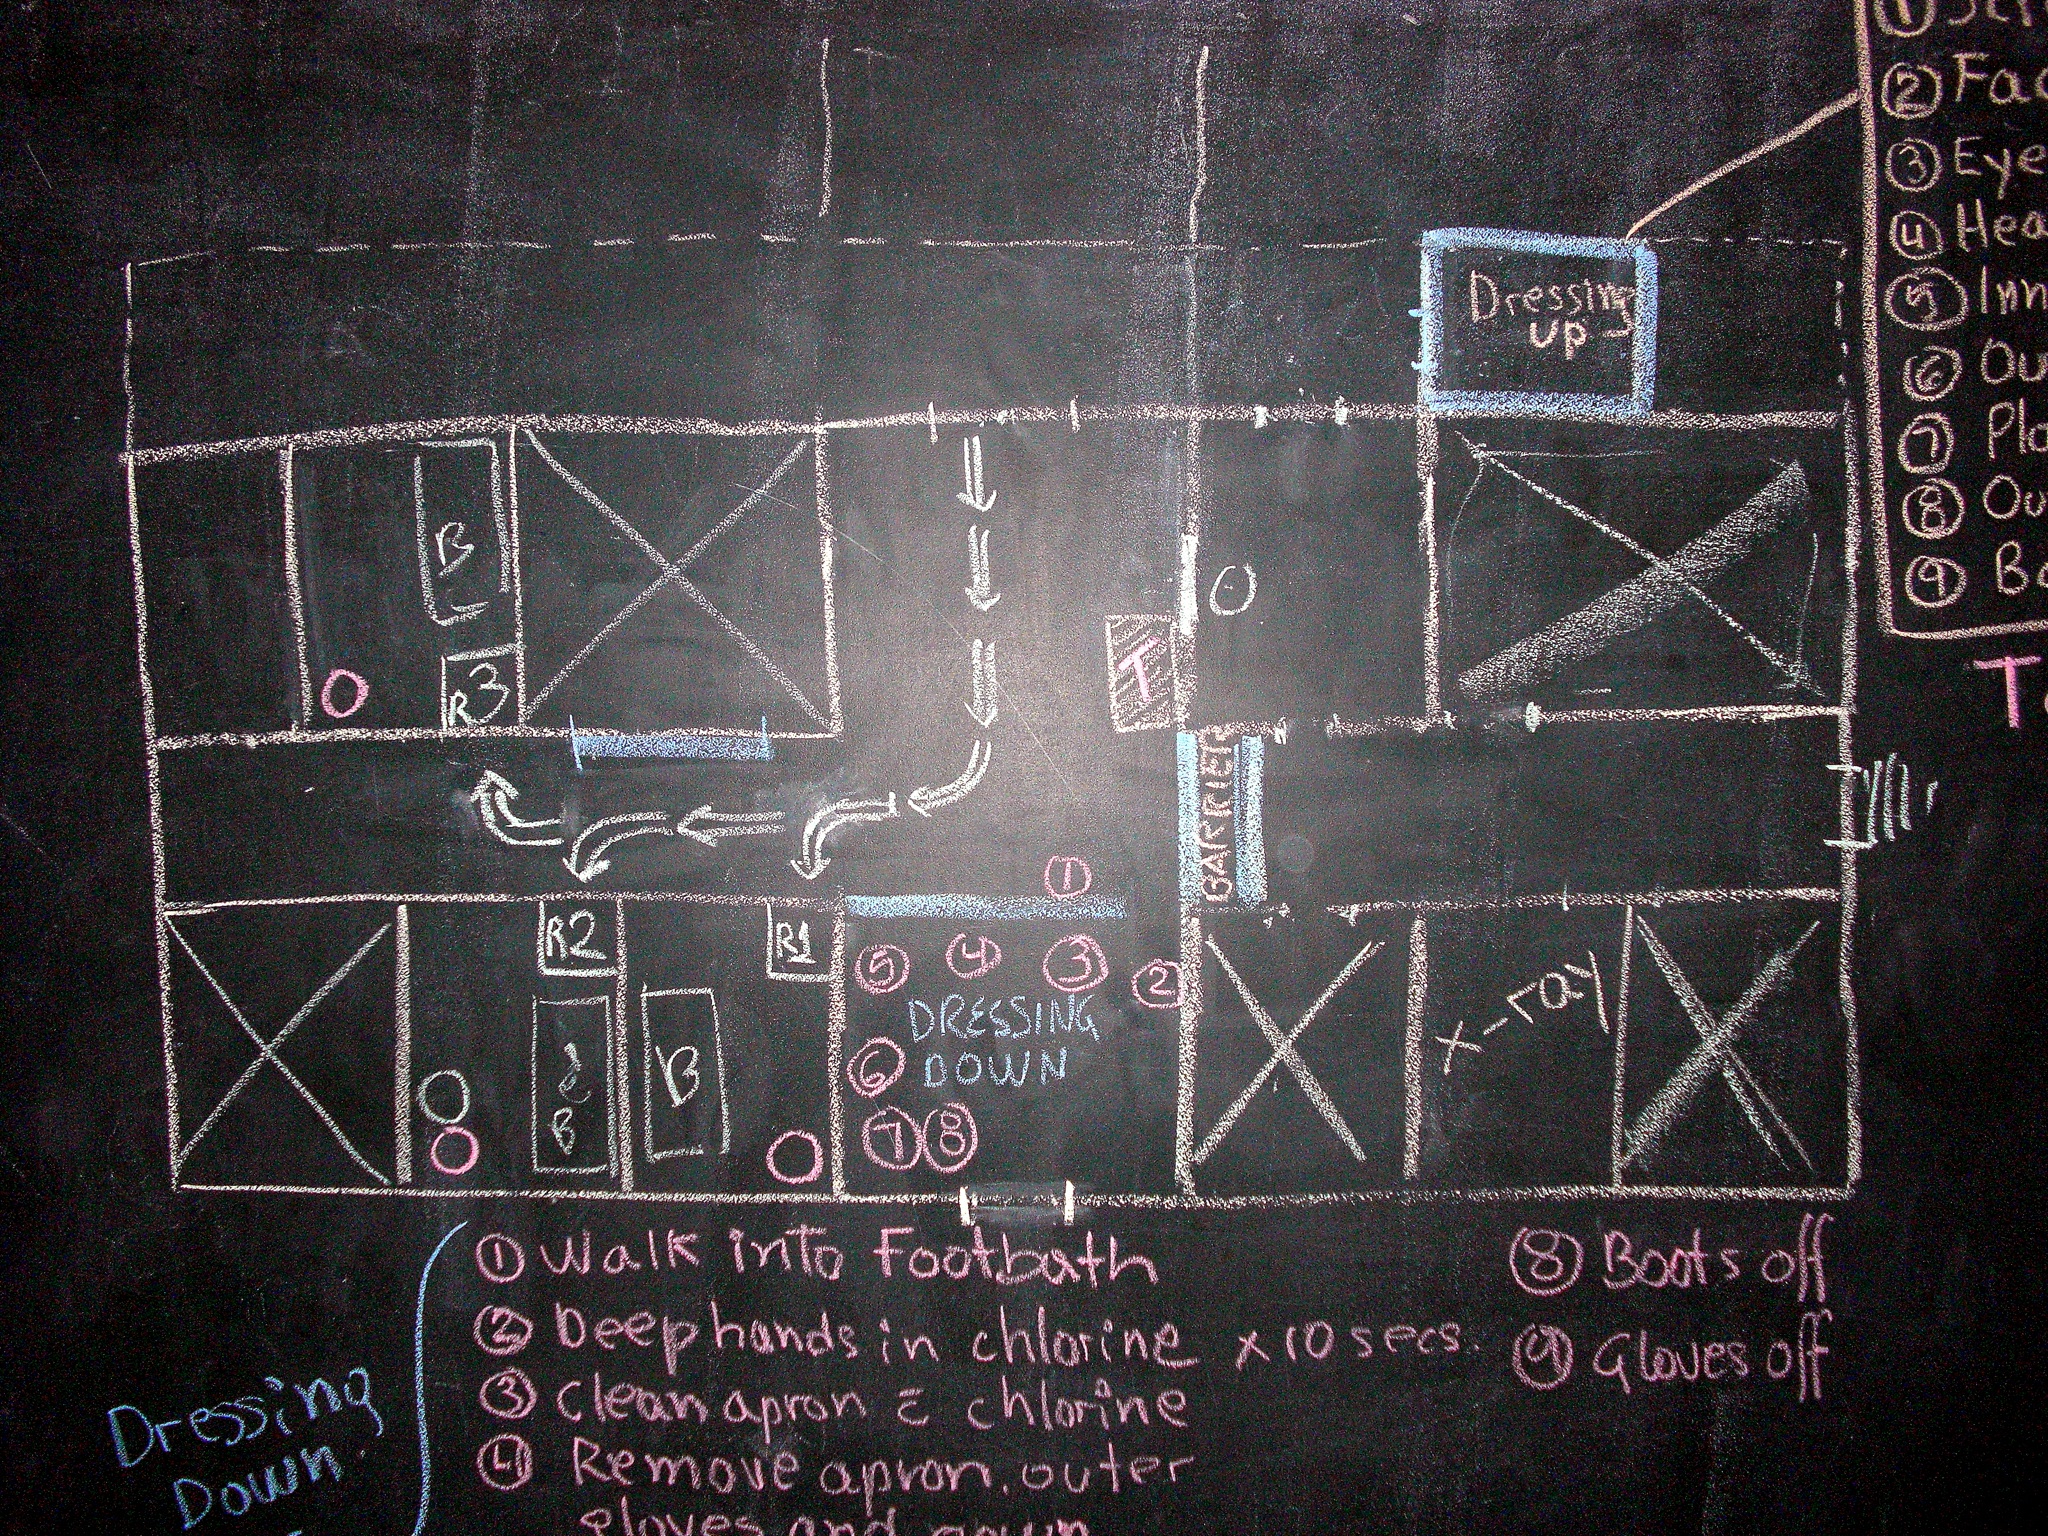 ①
② Fac
③ Eye
④ Hea
⑤ Inn
⑥ Ou
⑦ Pla
⑧ Ou
⑨ Bo
T
Dressing
UP
B
R3
T
O
BARRIER
R2
R1
①
⑤ ④ ③ ②
DRESSING
DOWN
⑥
⑦ ⑧
B
B
x-ray
Dressing
Down.
① Walk into Footbath
② Deep hands in chlorine x 10 secs.
③ Clean apron c chlorine
④ Remove apron, outer
gloves and gown
⑧ Boots off
⑨ Gloves off